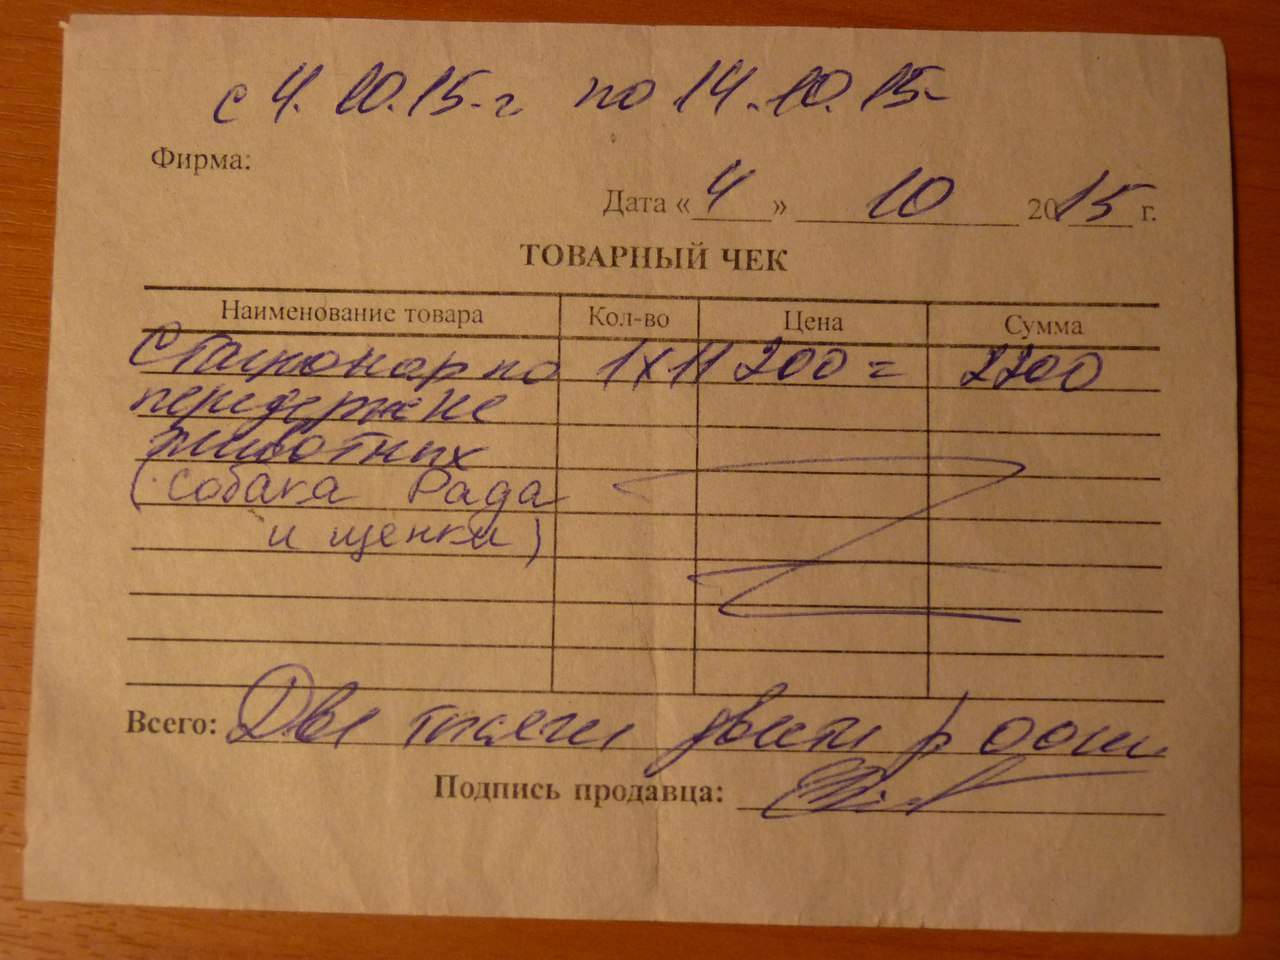 с 4.10.15-г по 14.10.15-
Фирма:
Дата «4» 10 2015 г.
ТОВАРНЫЙ ЧЕК
Наименование товара Кол-во Цена Сумма
Стационар по 1х11 200= 2200
передержке
животных
(собака Рада
и щенки)
Всего: Две тысячи двести р 00коп
Подпись продавца: